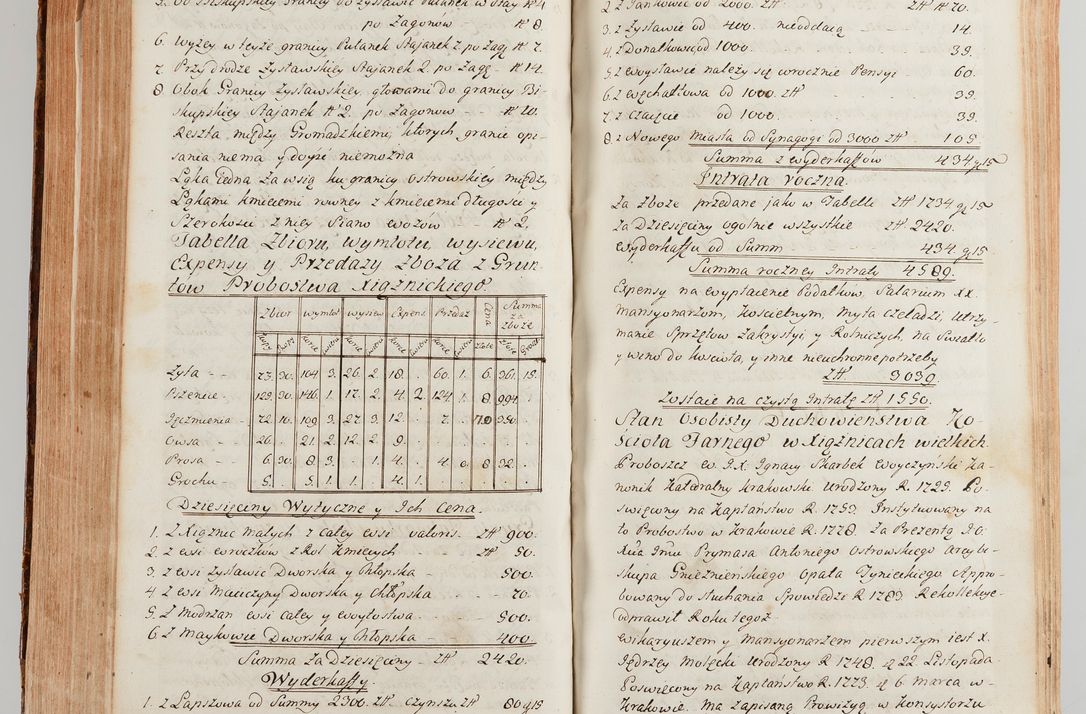 po Zagonow - N 8.
6. Wyzey w teyze granicy Pułanek Stajanek 2 po Zag N 7.
7. Przy drodze Zysławskiey Stajanek 2. po Zag - N 14.
8. Obok Granicy Zysławskiey, głowami do granicy Bi-
skupskiey Stajanek N 2. po Zagonow - - N 10.
Reszta między Gromadzkiemi, których granic opi-
sania niema y doyść niemozna
Łąka Jedna za wsią ku granicy Ostrowskiey między
Łąkami kmiecemi rowney z kmiecemi długości y
Szerokości z niey Siano wozów - N 2.
Tabella Zbioru, wymłotu, wysiewu,
Expensy y Przedazy Zboza z Grun-
tow Probostwa Xiąznickiego
Zbior wymłot wysiew Expens Przedaz Cena Summa za zboze
Zyta - - 73. 30. 104 3. 26. 2. 18. . 60. 1. 6. 361. 15.
Pszenice - 129. 30. 146. 1. 17. 2. 4. 2. 124. 1. 8. 994.
Jęczmienia - 72. 10. 109 3. 27 3. 12. . 7.
Owsa - - 26. . 21. 2. 12. 2. 9.
Prosa - - 6. 30. 8. 3. . 1. 4. . 4. 0. 8. 32.
Grochu - - 5. . 5. 1. 1. . 4. 1.
Dziesięciny Wytyczne y Ich Cena.
1. Z Xięznic małych z całey wsi valoris. Złł 900.
2. Z wsi z Rol Kmiecych - Złł 50.
3. Z wsi Zysławic Dworska y Chłopska - 500.
4. Z wsi Maciczyny Dworska y Chłopska - - 70.
5. Z Modrzan wsi całey y woytostwa - 500.
6. Z Maykowic Dworska y Chłopska - - 400.
Summa za Dziesięciny - Złł 2420.
Wyderkaffy.
1. Z Łapszowa od Summy 2300. Złł. Czynszu Złł 80 g 15
2. Z Jankowic od 2000. Złł Złł N 70.
3. Z Zysławic od 400. nieoddaią - 14.
4. Z Donatkowic od 1000. 39.
5. Z Woysławic nalezy się corocznie Pensyi - 60.
6. Z Węchałłowa od 1000. Złł. 39.
7. Z od 1000. 39.
8. Z Nowego Miasta od Synagogi od 3000 Złł 105
Summa z wyderkaffow 434 g 15
Intrata roczna.
Za Zboze przedane jako w Tabelli Złł 1734 g 15
Za Dziesięciny ogólnie wszystkie Złł 2420.
Wyderkaffu od Summ - 434. g 15.
Summa roczney Intraty 4589.
Expensy na wypłacenie Podatków, Salarium XX.
Mansyonarzom, Kościelnym, Myta Czeladzi, Utrzy-
manie Sprzętow Zakrystyi y Rolniczych, na Swiatło
y wino do kościoła, y inne nieuchronne potrzeby
Złł. 3039.
Zostaie na czystą Intratę Złł 1550.
Stan Osobisty Duchowieństwa Ko-
ścioła Farnego w Xiąznicach wielkich.
Proboszcz W. J. X. Ignacy Skarbek Woyczyński Ka-
nonik Katedralny Krakowski. Urodzony R. 1729. Po-
święcony na Kapłanstwo R. 1753. Instytuowany na
to Probostwo w Krakowie R. 1778. Za Prezentą JO.
Xcia Jmci Prymasa Antoniego Ostrowskiego Arcybi-
skupa Gnieznieńskiego Opata Tynieckiego Appro-
bowany do słuchania Spowiedzi R 1783 Rekollekcye
odprawił Roku tegoz
Wikaryuszem y Mansyonarzem pierwszym iest X.
Jędrzey Molęcki Urodzony R. 1748. d 22 Listopada.
Poswięcony na Kapłanstwo R. 1773. d 6 Marca w-
Krakowie. Ma zapisaną Prowizyą w Konsystorzu